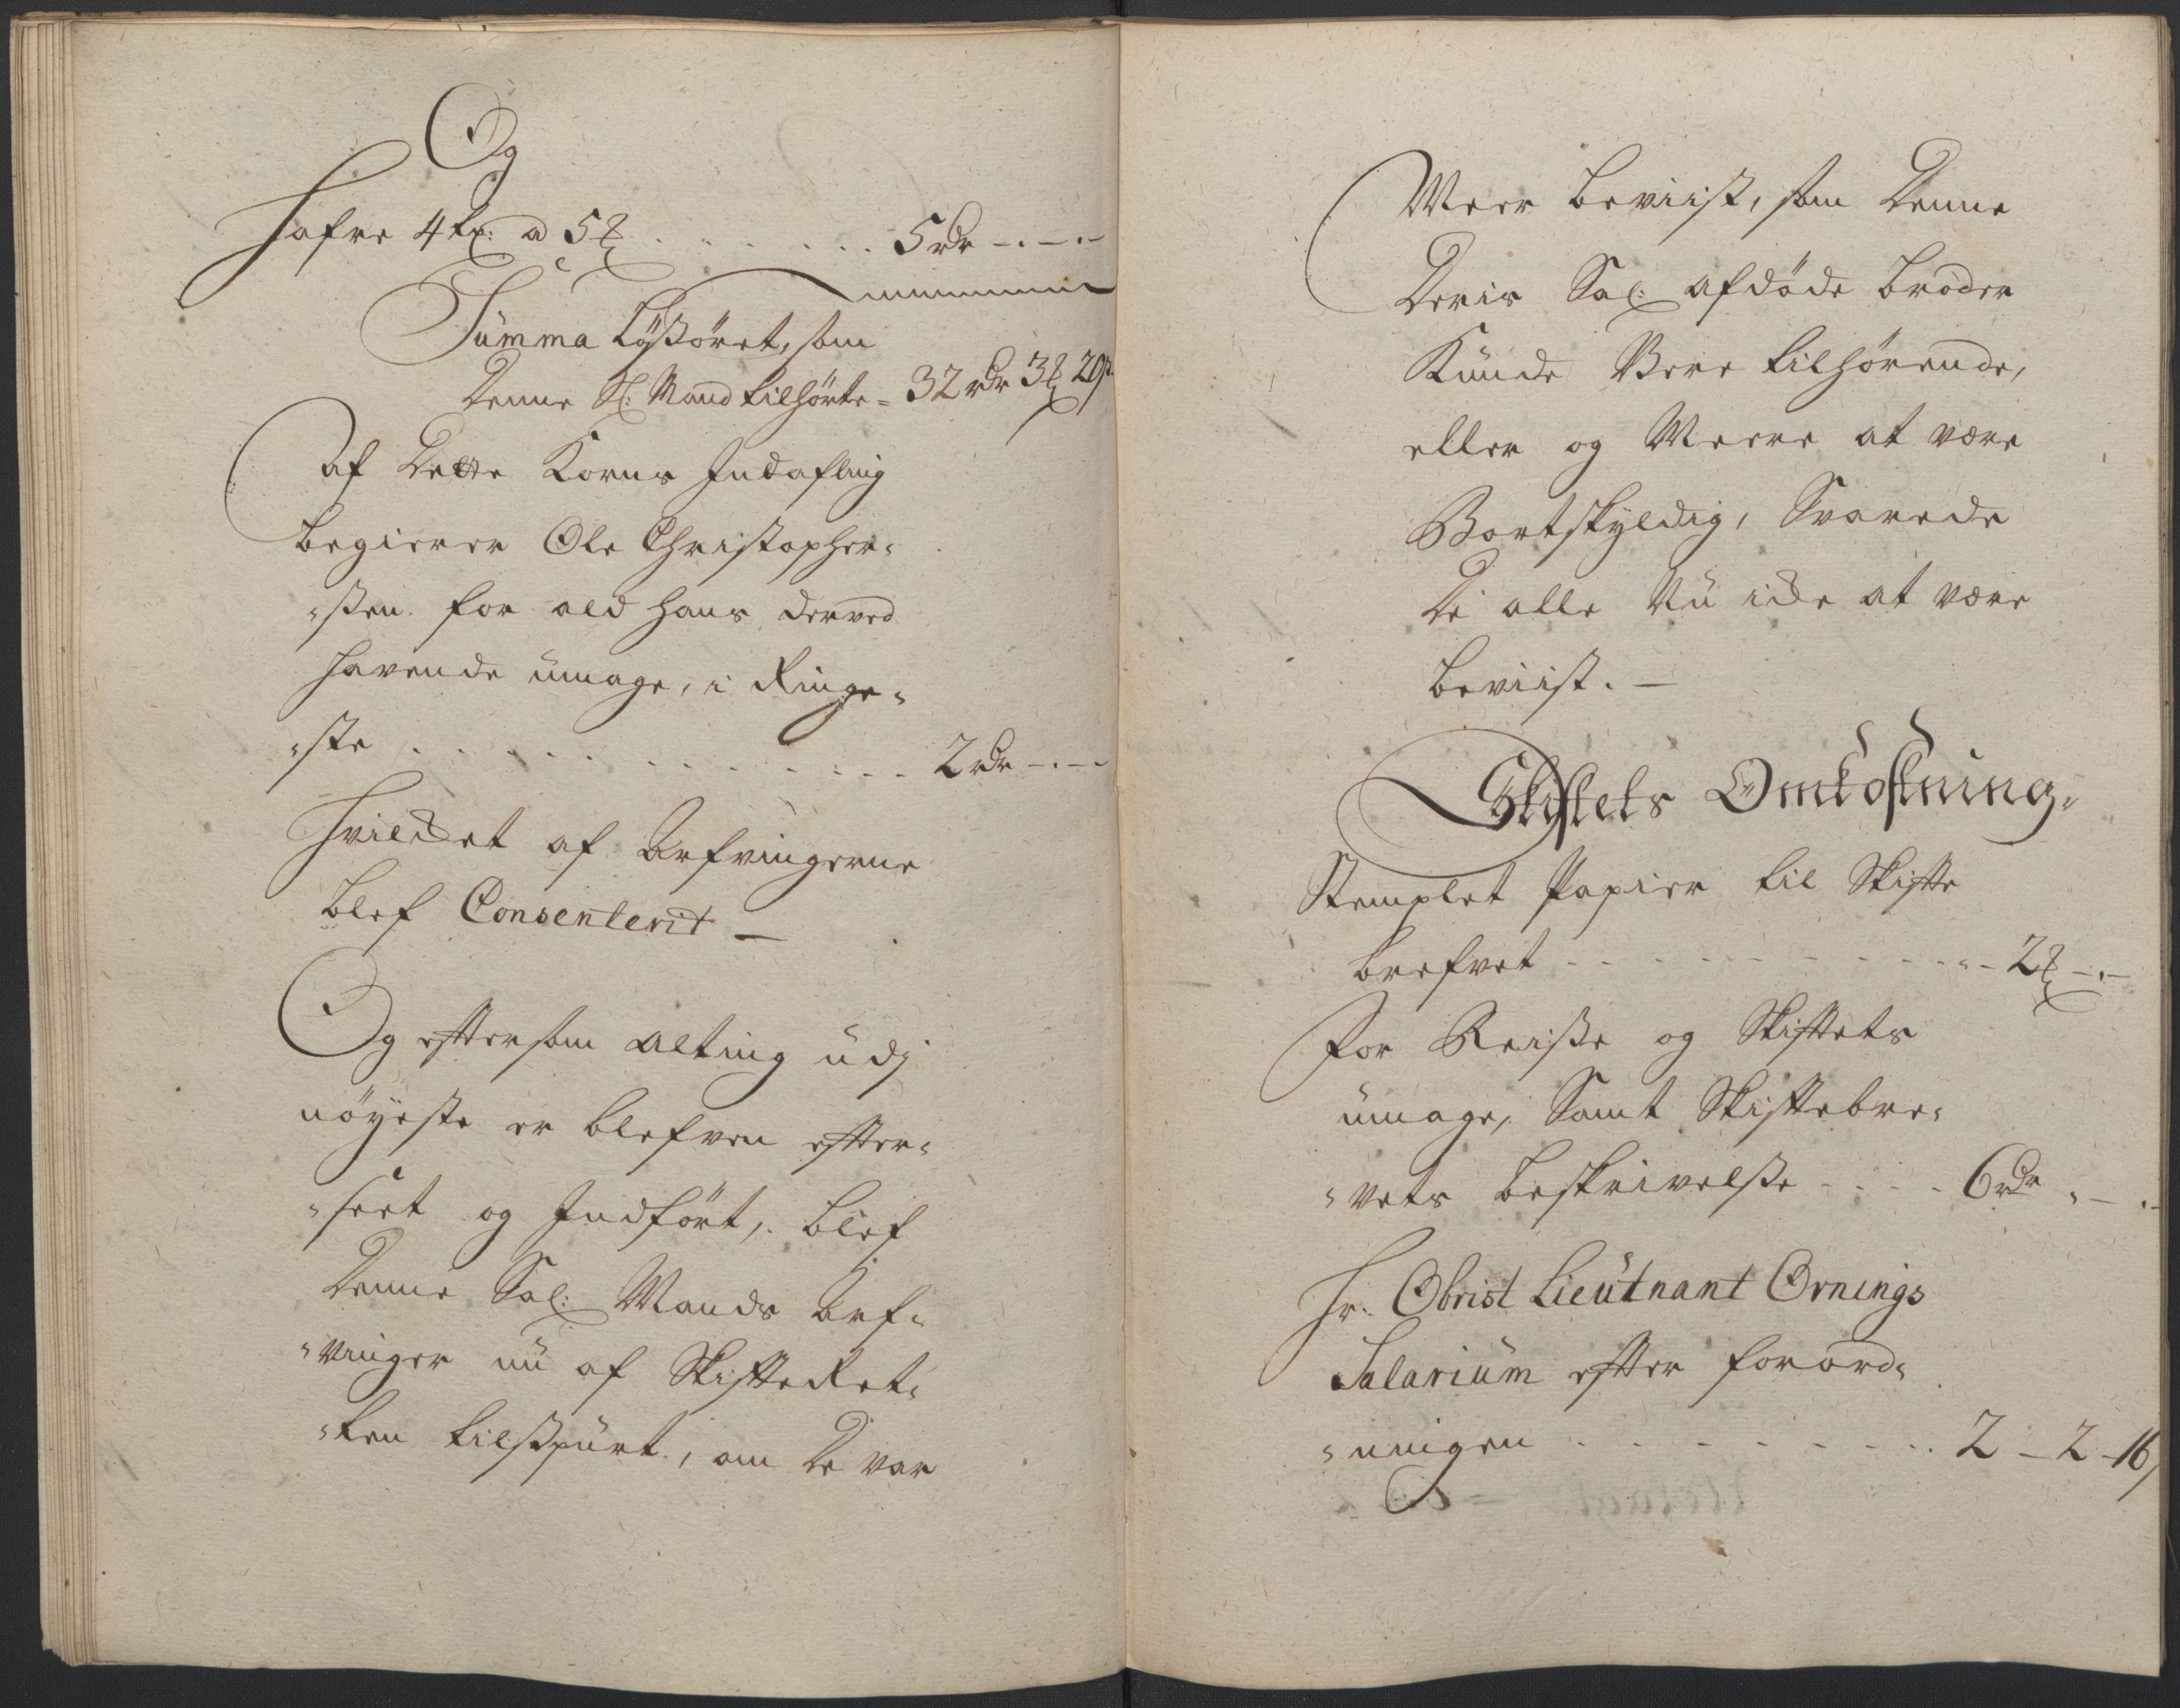 Og
Hafre 4 tr: a 5 ℔ . . . . . . . 5 rdr -.-.-
Summa Lößöret, som
Denne Sl: Mand tilhörte = 32 rdr 3 ℔ 20 s.
Af Dette Korns Indafling
begierer Ole Christopher-
-ßen for ald hans derved
havende ümage, i Ringe-
-ste . . . . . . . . . . . . . 2 rdr -.-.-
Hvilcket af Arfvingerne
blef Consenterit —
Og eftersom alting üdj
nöyeste er blefven efter-
-seet og Indfört, blef
Denne Sal: Mands Arf-
-vinger nü af SkifteRet-
-ten tilspürt, om De var
Meer beviist, som Denne
Deris Sal: afdöde broder
Künde Vere tilhörende,
eller og Meere at være
Bortskyldig, Svarede
De alle Nü icke at være
beviist. —
Skiftets Omkostning.
Stemplet Papier til Skifte
brefvet - - - - - - - - - - - 2 ℔ -.-
For Reiße og Skiftets
ümage, Samt Skiftebre-
-vets beskrivelße - - - - 6 rdr . - .-
Hr. Obrist Lieütnant Ornings
Salarium efter forord-
-ningen . . . . . . . . . . 2 - 2 - 16